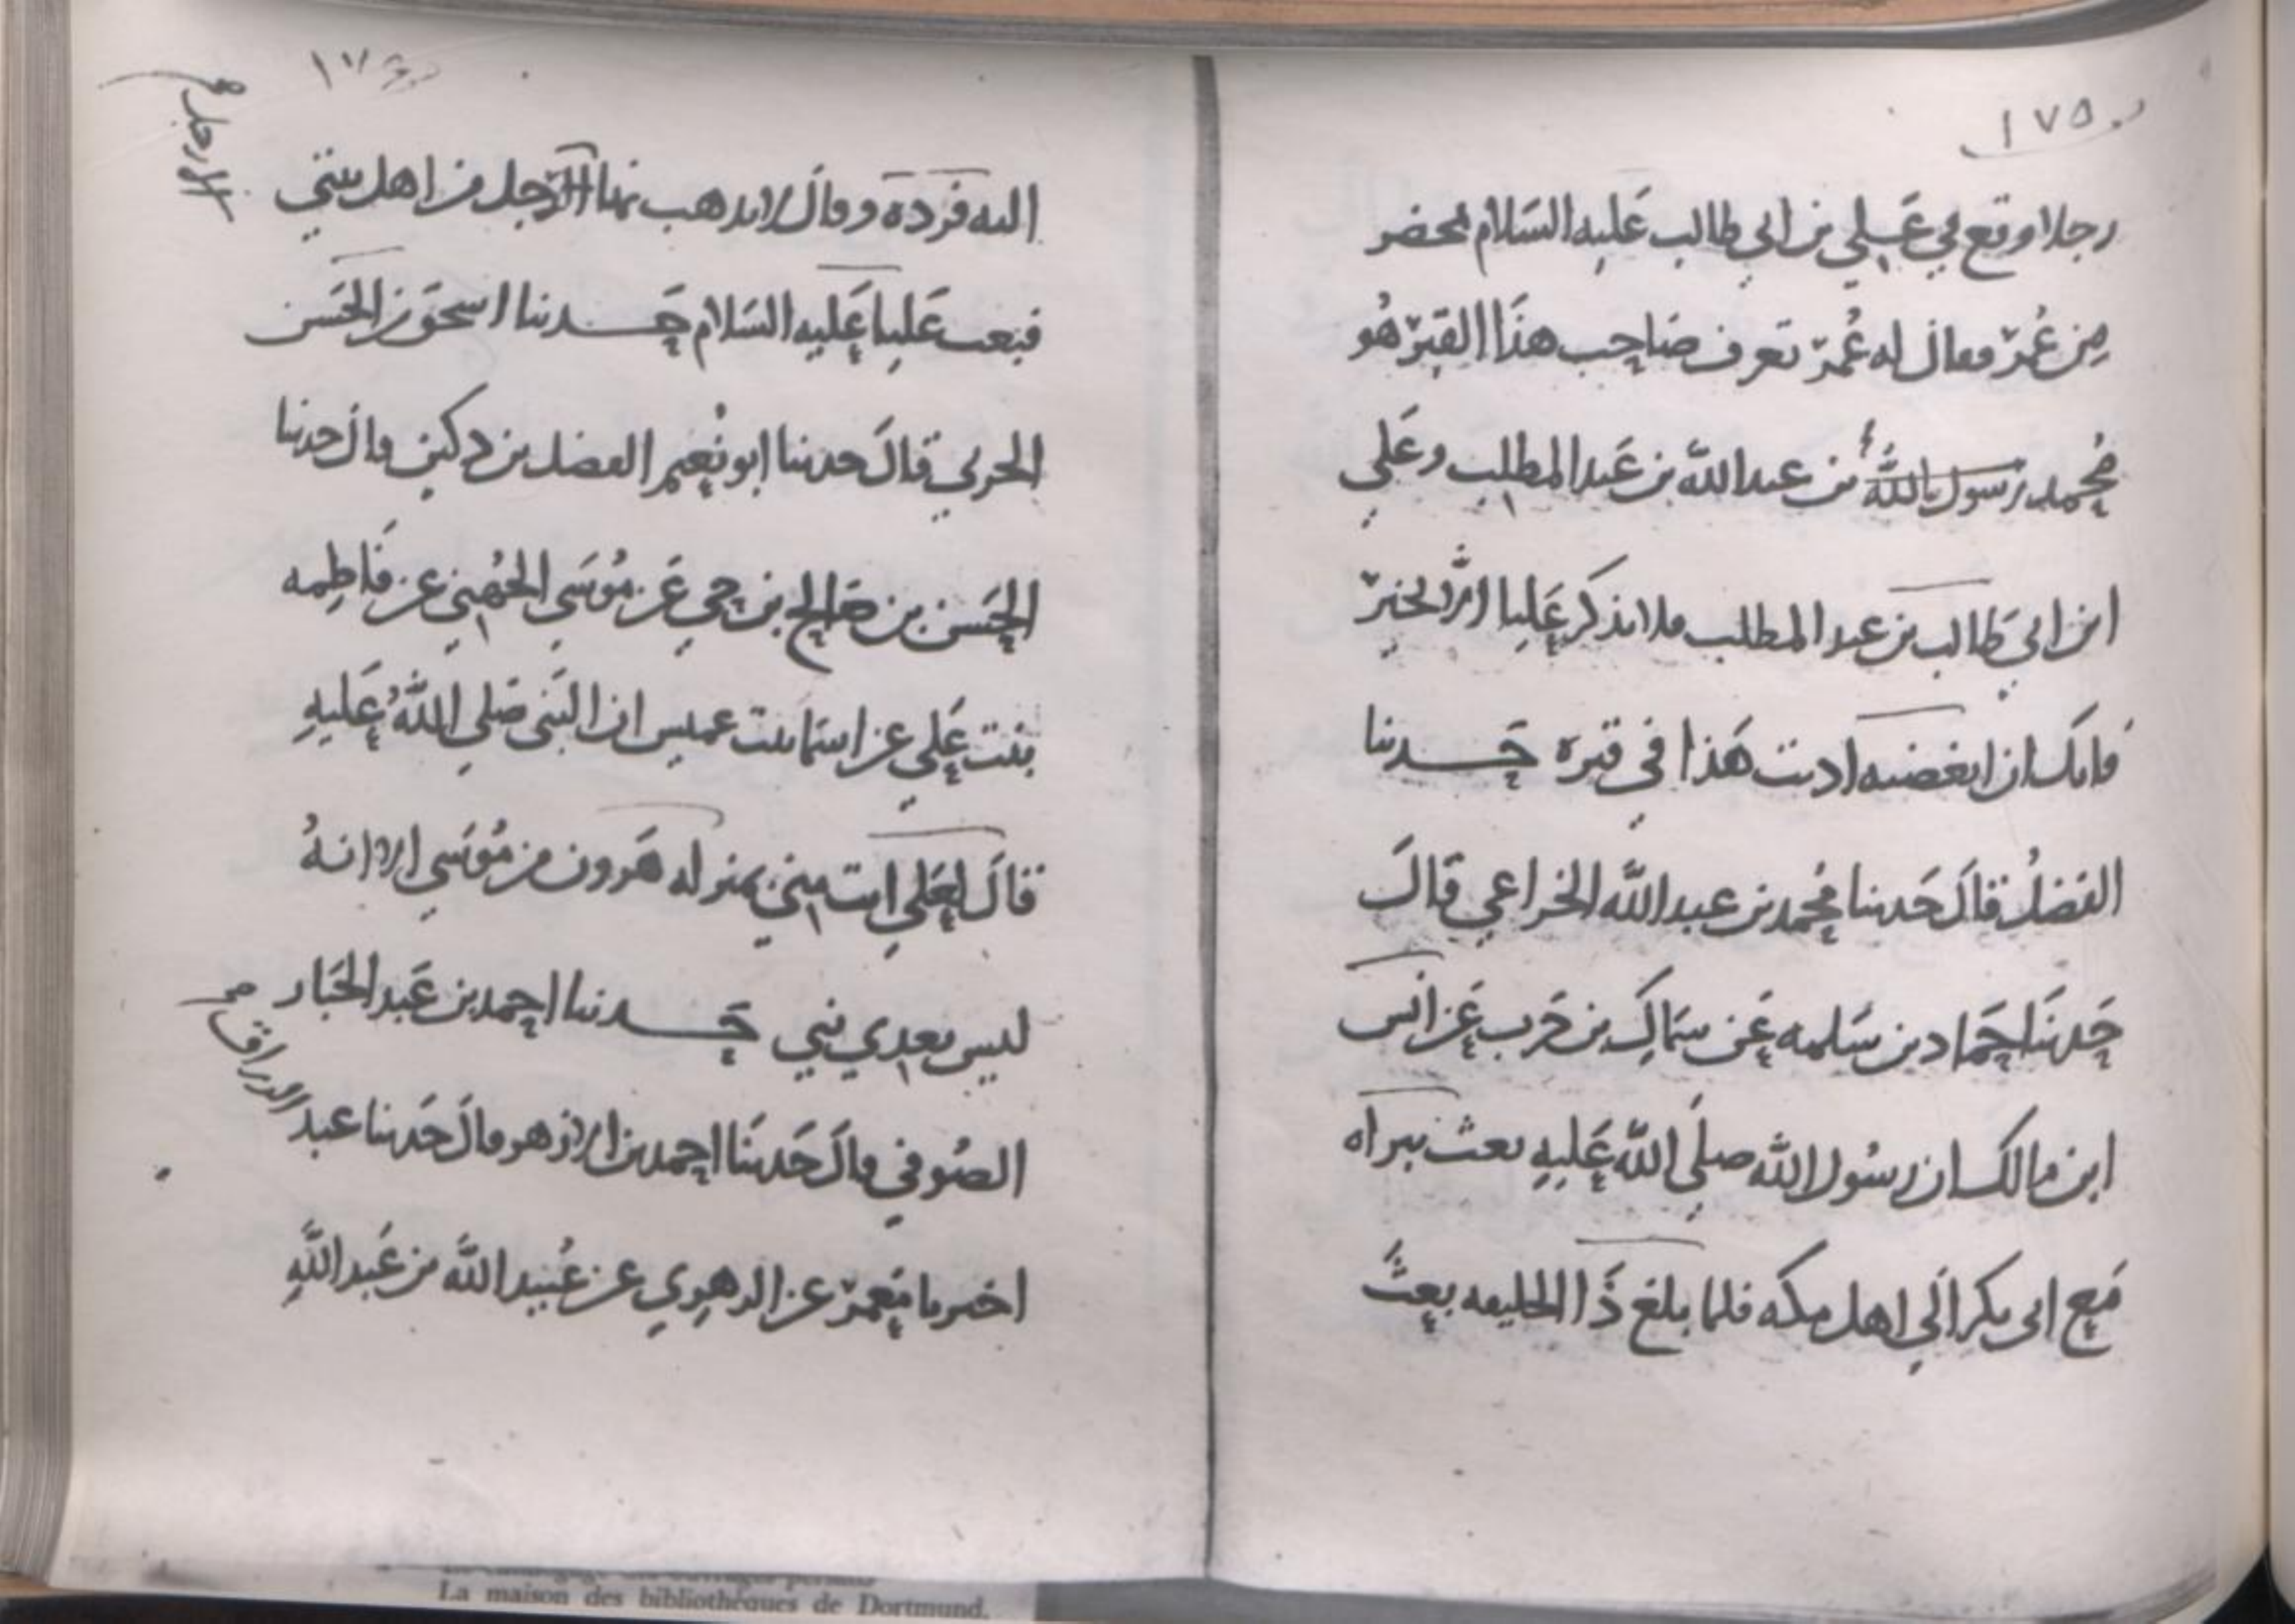 ١٧٥
رجلا وقع في علي بن ابي طالب عليه السلام بمحضر
من عمر فقال له عمر تعرف صاحب هذا القبر هو
محمد رسول الله بن عبد الله بن عبد المطلب وعلي
ابن ابي طالب بن عبد المطلب فلا تذكر عليا الا بخير
فانك ان ابغضته اذيت هذا في قبره حدثنا
الفضل قال حدثنا محمد بن عبد الله الخزاعي قال
حدثنا حماد بن سلمه عن سماك بن حرب عن انس
ابن مالك ان رسول الله صلى الله عليه بعث ببراه
مع ابي بكر الي اهل مكه فلما بلغ ذا الحليفه بعث
١٧٦
الا رجل
اليه فرده وقال لا يذهب بها الا رجل من اهل بيتي
فبعث عليا عليه السلام حدثنا اسحق بن الحسن
الحربي قال حدثنا ابو نعيم الفضل بن دكين قال حدثنا
الحسن بن صالح بن حي عن موسي الجهني عن فاطمه
بنت علي عن اسما بنت عميس ان النبي صلي الله عليه
قال لعلي انت مني بمنزله هرون من موسي الا انه
ليس بعدي نبي حدثنا احمد بن عبد الجبار
الصوفي قال حدثنا احمد بن الازهر قال حدثنا عبد
الرزاق
اخبرنا معمر عن الزهري عن عبيد الله بن عبد الله
La maison des bibliothèques de Dortmund.